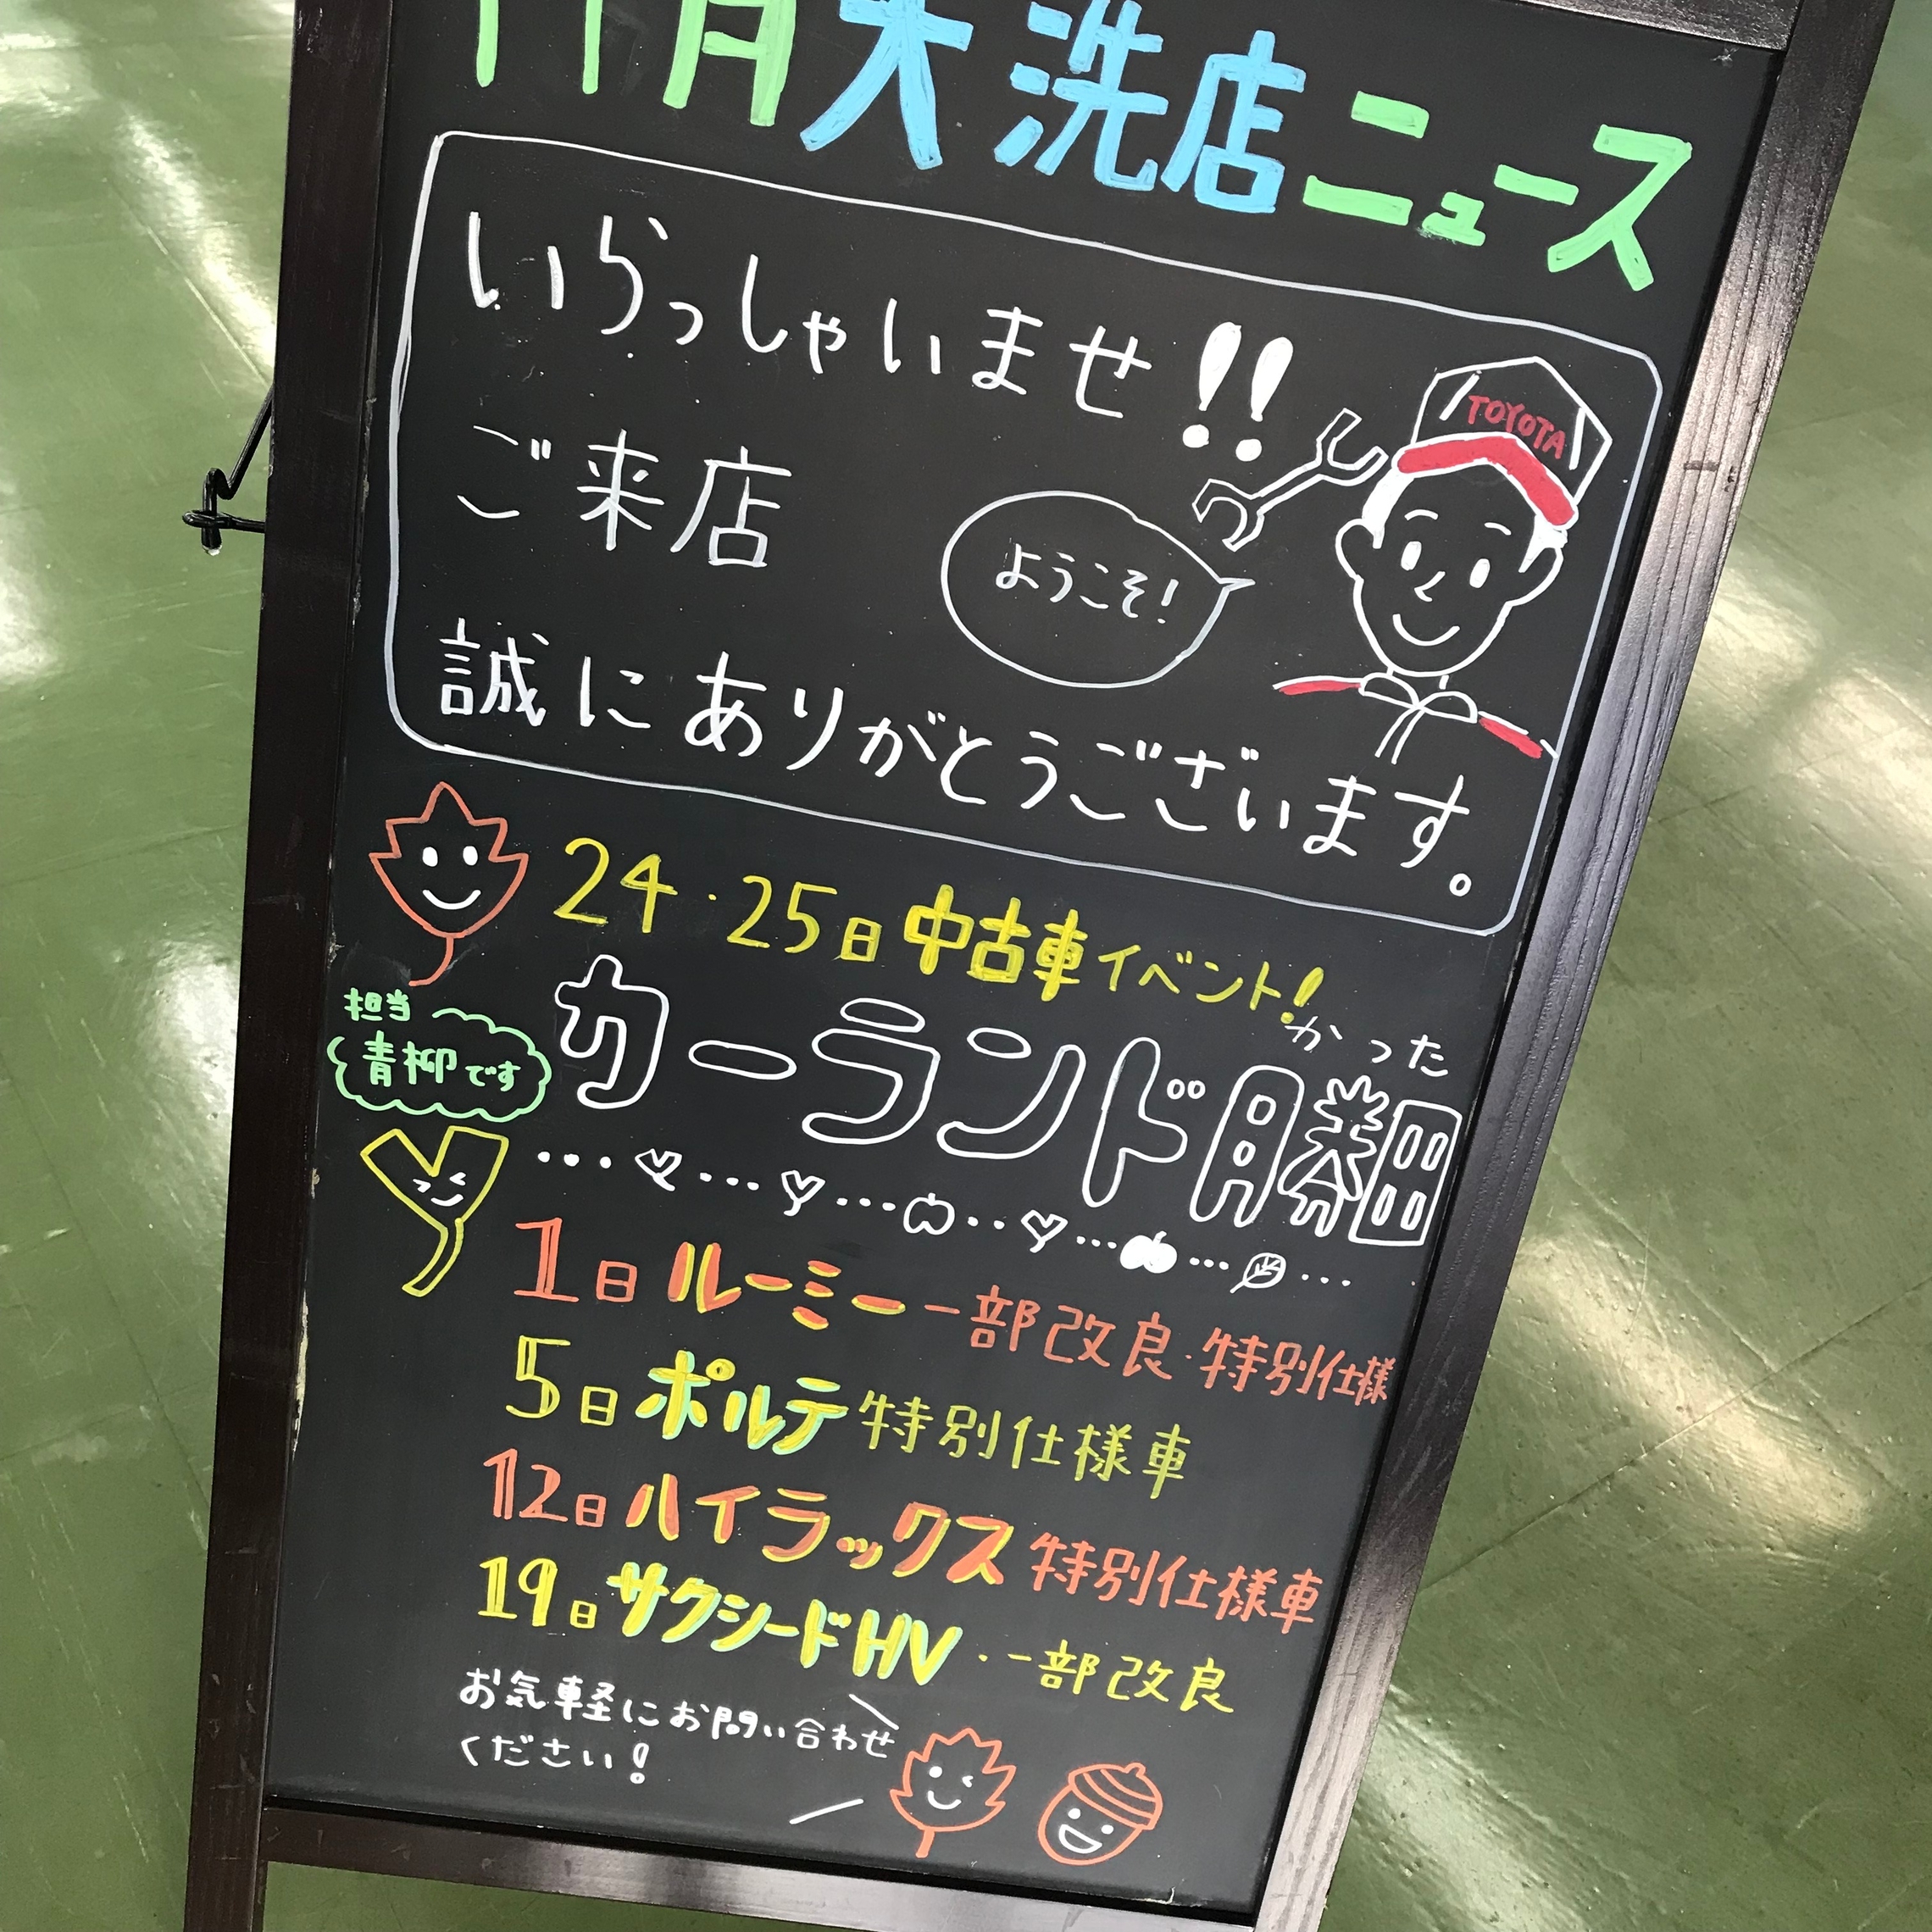 11月大洗店ニュース
いらっしゃいませ!!
TOYOTA
ご来店
ようこそ!
誠にありがとうございます。
24・25日中古車イベント!
かった
カーランド勝田
担当
青柳です
1日ルーミー一部改良・特別仕様
5日ポルテ特別仕様車
12日ハイラックス特別仕様車
19日サクシードHV・一部改良
お気軽にお問い合わせ
ください!